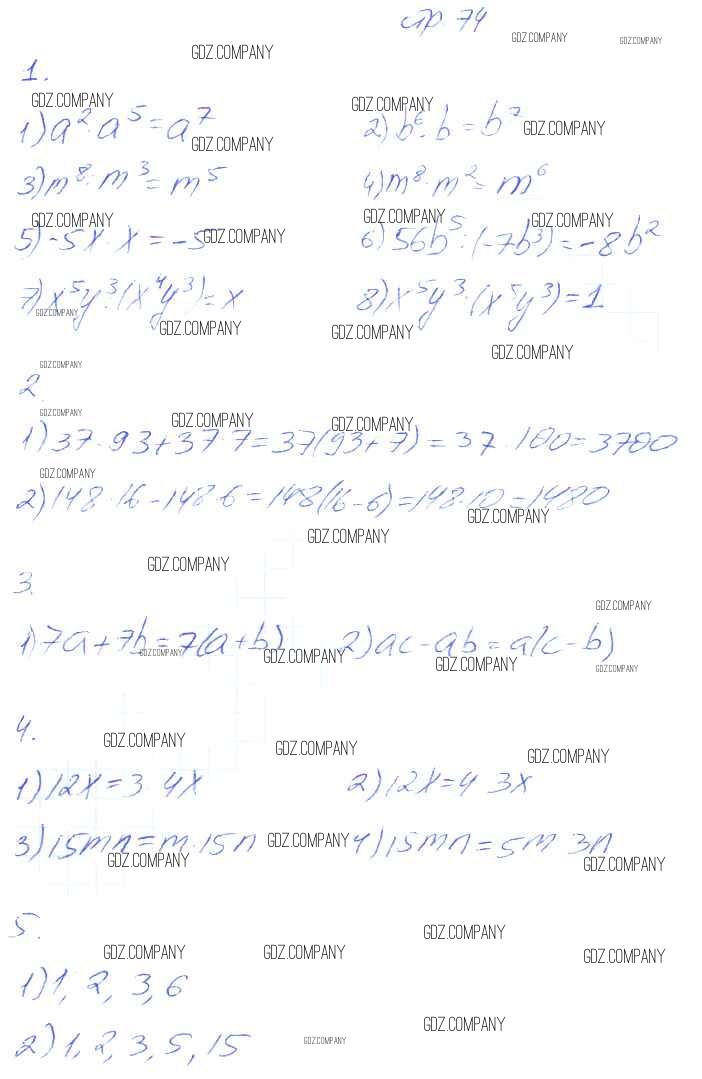 стр. 74
GDZ.COMPANY GDZ.COMPANY GDZ.COMPANY
1.
GDZ.COMPANY GDZ.COMPANY
1) a²·a⁵=a⁷ 2) b⁶·b=b⁷
GDZ.COMPANY GDZ.COMPANY
3) m⁸:m³=m⁵ 4) m⁸:m²=m⁶
GDZ.COMPANY GDZ.COMPANY GDZ.COMPANY
5) -5x:x=-5 6) 56b⁵:(-7b³)=-8b²
GDZ.COMPANY
7) x⁵y³:(x⁴y³)=x 8) x⁵y³:(x⁵y³)=1
GDZ.COMPANY
GDZ.COMPANY GDZ.COMPANY
GDZ.COMPANY
GDZ.COMPANY
2.
GDZ.COMPANY GDZ.COMPANY GDZ.COMPANY
1) 37·93+37·7=37(93+7)=37·100=3700
GDZ.COMPANY
2) 148·16-148·6=148(16-6)=148·10=1480
GDZ.COMPANY
GDZ.COMPANY
GDZ.COMPANY
3.
GDZ.COMPANY
1) 7a+7b=7(a+b) 2) ac-ab=a(c-b)
GDZ.COMPANY GDZ.COMPANY GDZ.COMPANY GDZ.COMPANY
4.
GDZ.COMPANY GDZ.COMPANY GDZ.COMPANY
1) 12x=3·4x 2) 12x=4 3x
3) 15mn=m·15n 4) 15mn=5m 3n
GDZ.COMPANY GDZ.COMPANY GDZ.COMPANY
5.
GDZ.COMPANY
GDZ.COMPANY GDZ.COMPANY GDZ.COMPANY
1) 1, 2, 3, 6
GDZ.COMPANY
2) 1, 2, 3, 5, 15
GDZ.COMPANY